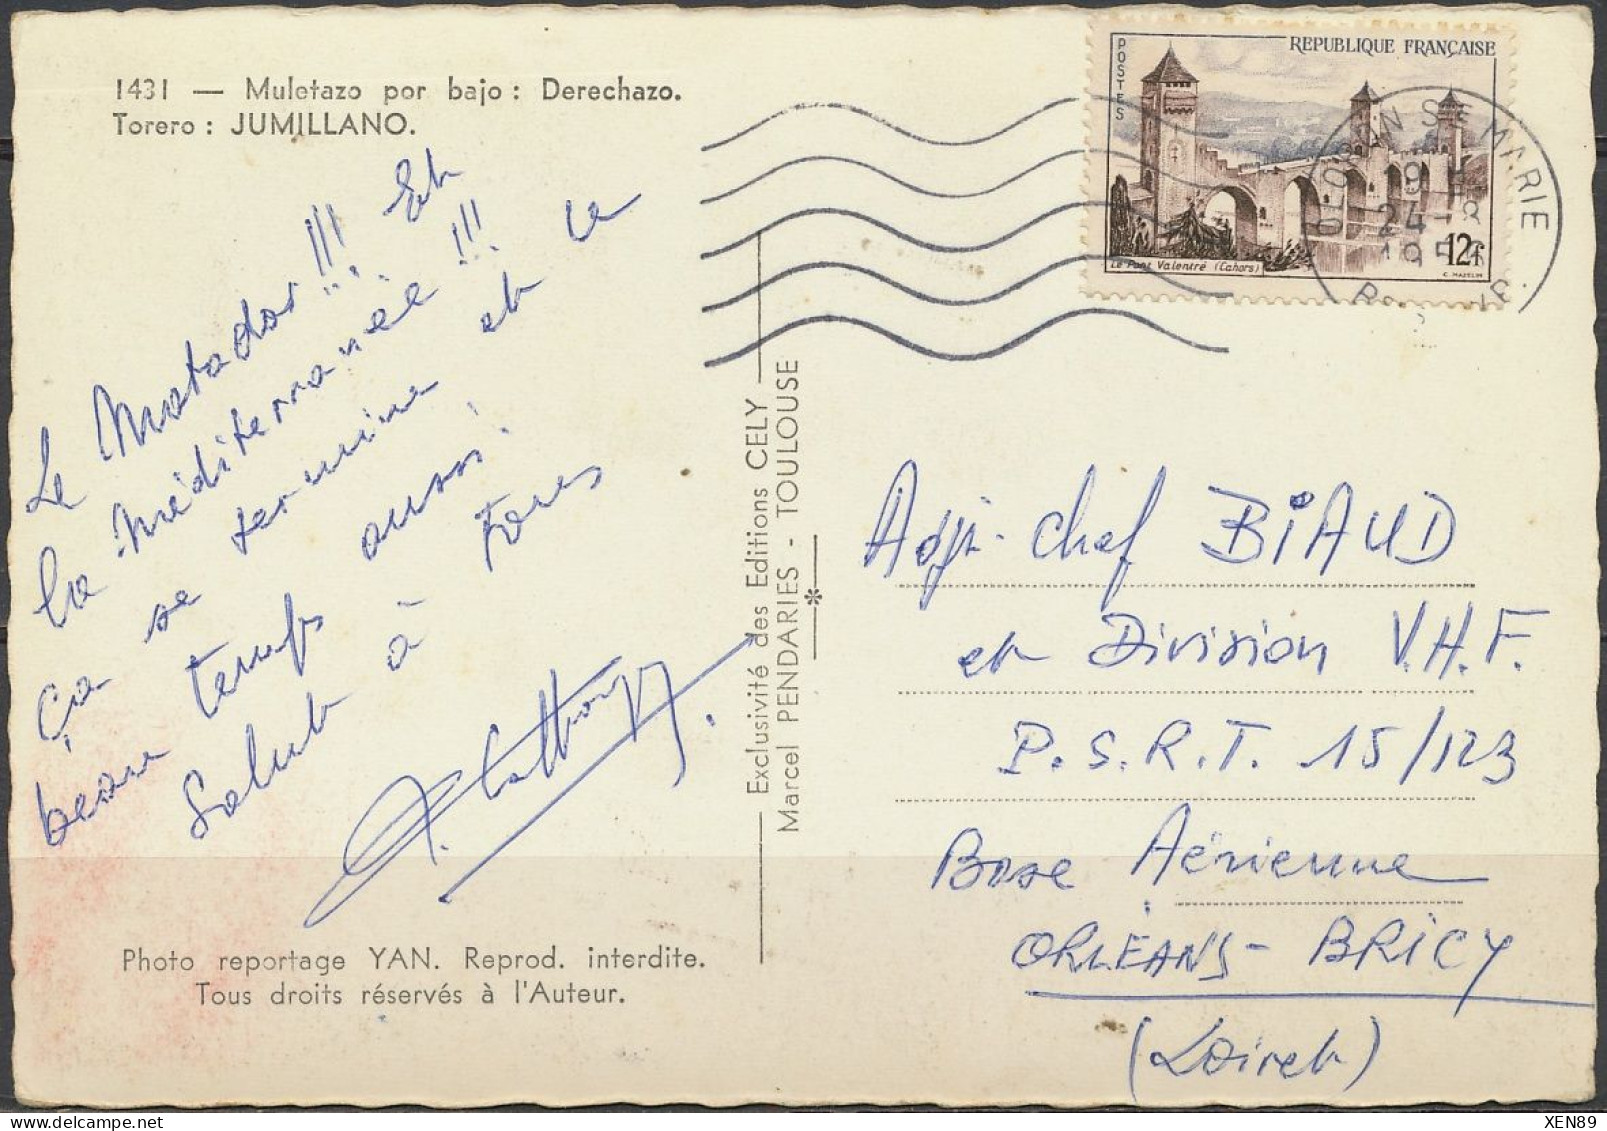 1431 — Muletazo por bajo : Derechazo.
Torero : JUMILLANO.
Le Matador !!! Et
la Méditerranée !!!
ça se termine et le
beau temps aussi.
Salut à tous
Exclusivité des Editions CELY
Marcel PENDARIES - TOULOUSE
Photo reportage YAN. Reprod. interdite.
Tous droits réservés à l'Auteur.
POSTES
REPUBLIQUE FRANÇAISE
Le Pont Valentré (Cahors)
12f
C. MAZELIN
OLORON Ste MARIE
9 H
24-8
Adjt-Chef BIAUD
et Division V.H.F.
P.S.R.T. 15/123
Base Aérienne
ORLÉANS - BRICY
(Loiret)
XEN89